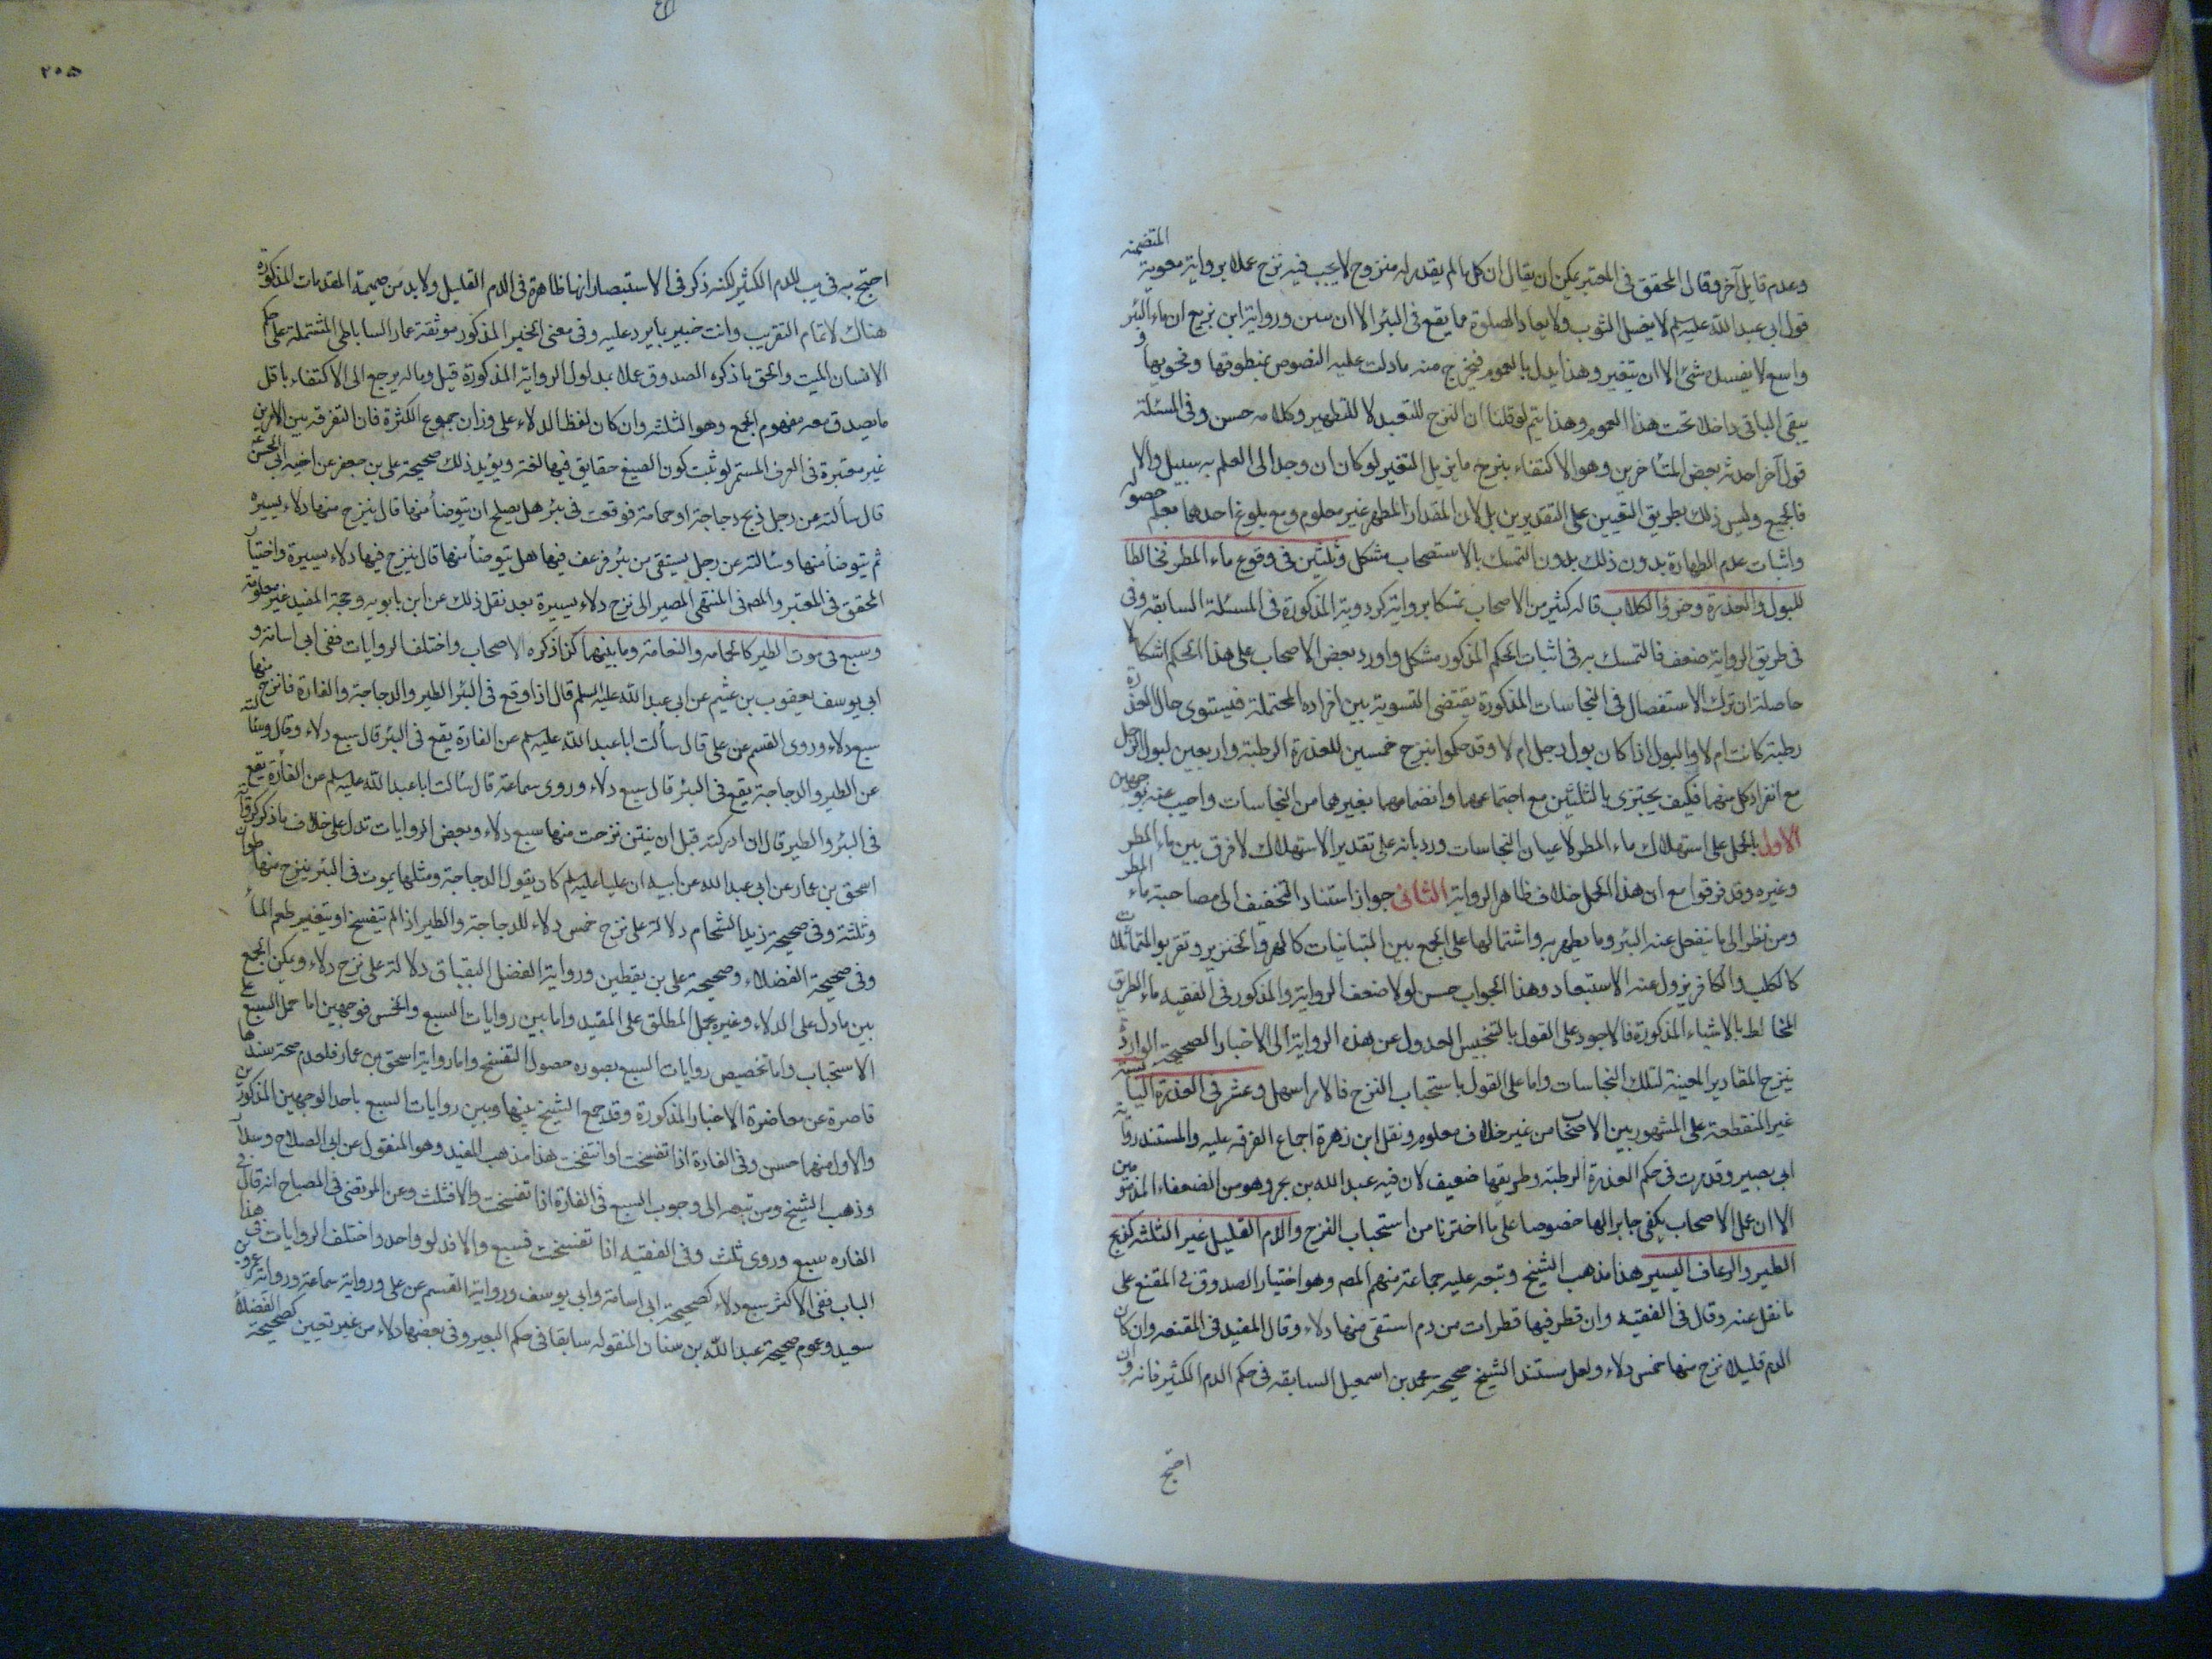 وعدم قايل آخر وقال المحقق فى المعتبر يمكن ان يقال ان كل ما لم يقدر له منزوح لا يجب فيه نزح عملا برواية معوية المتضمنة
قول ابى عبد الله عليه السلم لا يغسل الثوب ولا يعاد الصلوة مما يقع فى البئر الا ان ينتن ورواية ابن بزيع ان ماء البئر
واسع لا يفسده شئ الا ان يتغير وهذا يدل بالعموم فيخرج منه ما دلت عليه النصوص بمنطوقها وفحويها و
يبقى الباقى داخلا تحت هذا العموم وهذا يتم لو قلنا ان النزح للتعبد لا للتطهير وكلامه حسن وفى المسئلة
قول آخر احدثه بعض المتأخرين وهو الاكتفاء بنزح ما يزيل التغير لو كان ان وجد الى العلم به سبيل والا
فالجميع وليس ذلك بطريق التعيين على التقديرين بل لان المقدار المطهر غير معلوم ومع بلوغ احدهما يعلم حصوله
واثبات عدم الطهارة بدون ذلك بدون التمسك بالاستصحاب مشكل وثلثين فى وقوع ماء المطر مخالطا
للبول والعذرة وخرؤ الكلاب قاله كثير من الاصحاب تمسكا برواية كردوية المذكورة فى المسئلة السابقه وفى
فى طريق الرواية ضعف فالتمسك به فى اثبات الحكم المذكور مشكل واورد بعض الاصحاب على هذا الحكم اشكالا
حاصله ان ترك الاستفصال فى النجاسات المذكورة يقتضى التسوية بين افراده المحتملة فيستوى حال العذرة
رطبة كانت ام لا والبول اذا كان بول رجل ام لا وقد حكموا بنزح خمسين للعذرة الرطبة واربعين لبول الرجل
مع انفراد كل منهما فكيف يجتزى بالثلثين مع اجتماعهما وانضمامهما بغيرهما من النجاسات واجيب عنه بوجهين
الاول بالحمل على استهلاك ماء المطر لاعيان النجاسات ورد بانه على تقدير الاستهلاك لا فرق بين ماء المطر
وغيره وقد فرقوا مع ان هذا الحمل خلاف ظاهر الرواية الثانى جواز استناد التخفيف الى مصاحبة ماء المطر
ومن نظر الى ما ينفعل عنه البئر وما يطهر به واشتمالها على الجمع بين المتباينات كالهر والخنزير وتفريق المتماثلات
كالكلب والكافر يزول عنه الاستبعاد وهذا الجواب حسن لولا ضعف الرواية والمذكور فى الفقيه ماء الطريق
المخالط بالاشياء المذكورة فالاجود على القول بالتنجيس العدول عن هذه الرواية الى الاخبار الصحيحة الواردة
بنزح المقادير المعينة لتلك النجاسات واما على القول باستحباب النزح فالامر اسهل وعشر فى العذرة اليابسة
غير المنقطعة على المشهور بين الاصحاب من غير خلاف معلوم ونقل ابن زهرة اجماع الفرقه عليه والمستند رواية
ابى بصير وقد مرت فى حكم العذرة الرطبة وطريقها ضعيف لان فيه عبد الله بن بحر وهو من الضعفاء المذمومين
الا ان عمل الاصحاب يكفى جابرا لها خصوصا على ما اخترنا من استحباب النزح والدم القليل غير الثلثة كذبح
الطير والرعاف اليسير هذا مذهب الشيخ وتبعه عليه جماعة منهم المص وهو اختيار الصدوق فى المقنع على
ما نقل عنه وقال فى الفقيه وان قطر فيها قطرات من دم استقى منها دلاء وقال المفيد فى المقنعه وان كان
الدم قليلا نزح منها خمس دلاء ولعل مستند الشيخ صحيحة محمد بن اسمعيل السابقه فى حكم الدم الكثير فانه وان
احتج
٢٠٥
احتج به فى يب للدم الكثير لكنه ذكر فى الاستبصار انها ظاهرة فى الدم القليل ولا بد من ضميمة المقدمات المذكورة
هناك لاتمام التقريب وانت خبير بما يرد عليه وفى معنى الخبر المذكور موثقة عمار الساباطى المشتملة على حكم
الانسان الميت والحق ما ذكره الصدوق عملا بمدلول الرواية المذكورة قيل وماله يرجع الى الاكتفاء باقل
ما يصدق معه مفهوم الجمع وهو الثلثه وان كان لفظ الدلاء على وزان جموع الكثرة فان التفرقه بين الامرين
غير معتبرة فى العرف المستمر لو ثبت كون الصيغ حقايق فيها لغة ويؤيد ذلك صحيحة على بن جعفر عن اخيه ابى الحسن ع
قال سألته عن رجل ذبح دجاجة او حمامة فوقعت فى بئر هل يصلح ان يتوضأ منها قال ينزح منها دلاء يسيره
ثم يتوضأ منها وسألته عن رجل يستقى من بئر فرعف فيها هل يتوضأ منها قال ينزح فيها دلاء يسيرة واختيار
المحقق فى المعتبر والمص فى المنتهى المصير الى نزح دلاء يسيرة بعد نقل ذلك عن ابن بابويه وحجة المفيد غير معلومة
وسبع فى موت الطير كالحمامه والنعامة وما بينهما كذا ذكره الاصحاب واختلف الروايات ففى ابى اسامة و
ابى يوسف يعقوب بن عثيم عن ابى عبد الله عليه السلم قال اذا وقع فى البئر الطير والدجاجة والفارة فانزح منها
سبع دلاء وروى القسم عن على قال سألت ابا عبد الله عليه السلم عن الفارة يقع فى البئر قال سبع دلاء وقال وسألته
عن الطير والدجاجة يقع فى البئر قال سبع دلاء وروى سماعة قال سألت ابا عبد الله عليه السلم عن الفارة يقع
فى البئر والطير قال ان ادركته قبل ان ينتن نزحت منها سبع دلاء وبعض الروايات تدل على خلاف ما ذكر كرواية
اسحق بن عمار عن ابى عبد الله عن ابيه ان عليا عليه السلم كان يقول الدجاجة ومثلها يموت فى البئر ينزح منها دلوان
وثلثة وفى صحيحة زيد الشحام دلالة على نزح خمس دلاء للدجاجة والطير اذا لم يتفسخ او يتغير طعم الماء
وفى صحيحة الفضلاء وصحيحة على بن يقطين ورواية الفضل البقباق دلالة على نزح دلاء ويمكن الجمع
بين ما دل على الدلاء وغيره بحمل المطلق على المقيد واما بين روايات السبع والخمس فوجهين اما حمل السبع على
الاستحباب واما تخصيص روايات السبع بصوره حصول التفسخ واما رواية اسحق بن عمار فلعدم صحة سندها
قاصرة عن معارضة الاخبار المذكورة وقد جمع الشيخ بينها وبين روايات السبع باحد الوجهين المذكورين
والاول منهما حسن وفى الفارة اذا تفسخت او انتفخت هذا مذهب المفيد وهو المنقول عن ابى الصلاح وسلار
وذهب الشيخ ومن تبعه الى وجوب السبع فى الفارة اذا تفسخت والا فثلث وعن المرتضى فى المصباح انه قال فى
الفاره سبع وروى ثلث وفى الفقيه اذا تفسخت فسبع والا فدلو واحد واختلف الروايات فى هذا
الباب ففى الاكثر سبع دلاء كصحيحة ابى اسامة وابى يوسف ورواية القسم عن على ورواية سماعة ورواية عمرو بن
سعيد وعموم صحيحة عبد الله بن سنان المنقوله سابقا فى حكم البعير وفى بعضها دلاء من غير تعيين كصحيحة الفضلاء